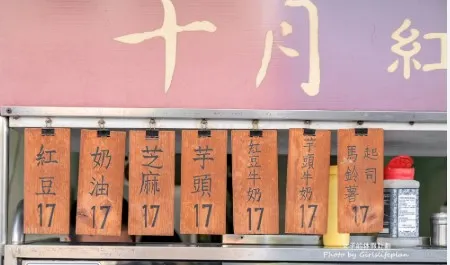 十月 紅
紅豆
17
奶油
17
芝麻
17
芋頭
17
紅豆牛奶
17
芋頭牛奶
17
起司
馬鈴薯
17
Photo by Girlslifeplan